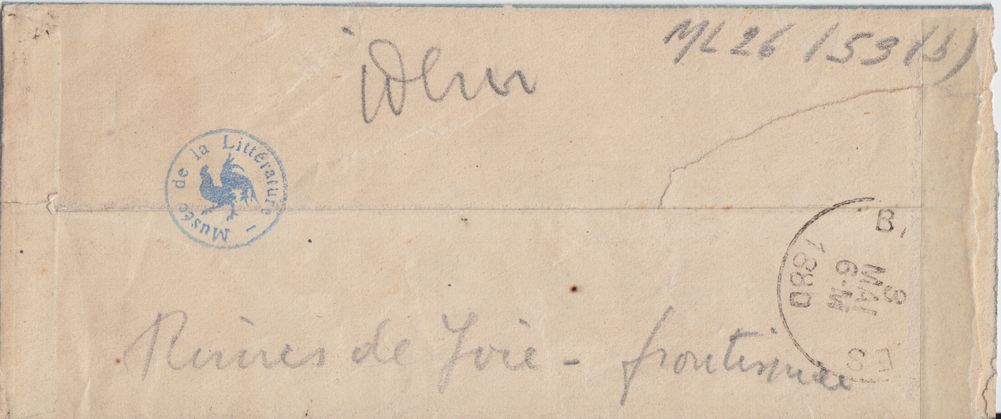 ML 26 / 53 (b)
idem
Musée de la Littérature -
B
3
MAI
6-M
1880
Rimes de Joie - frontispice